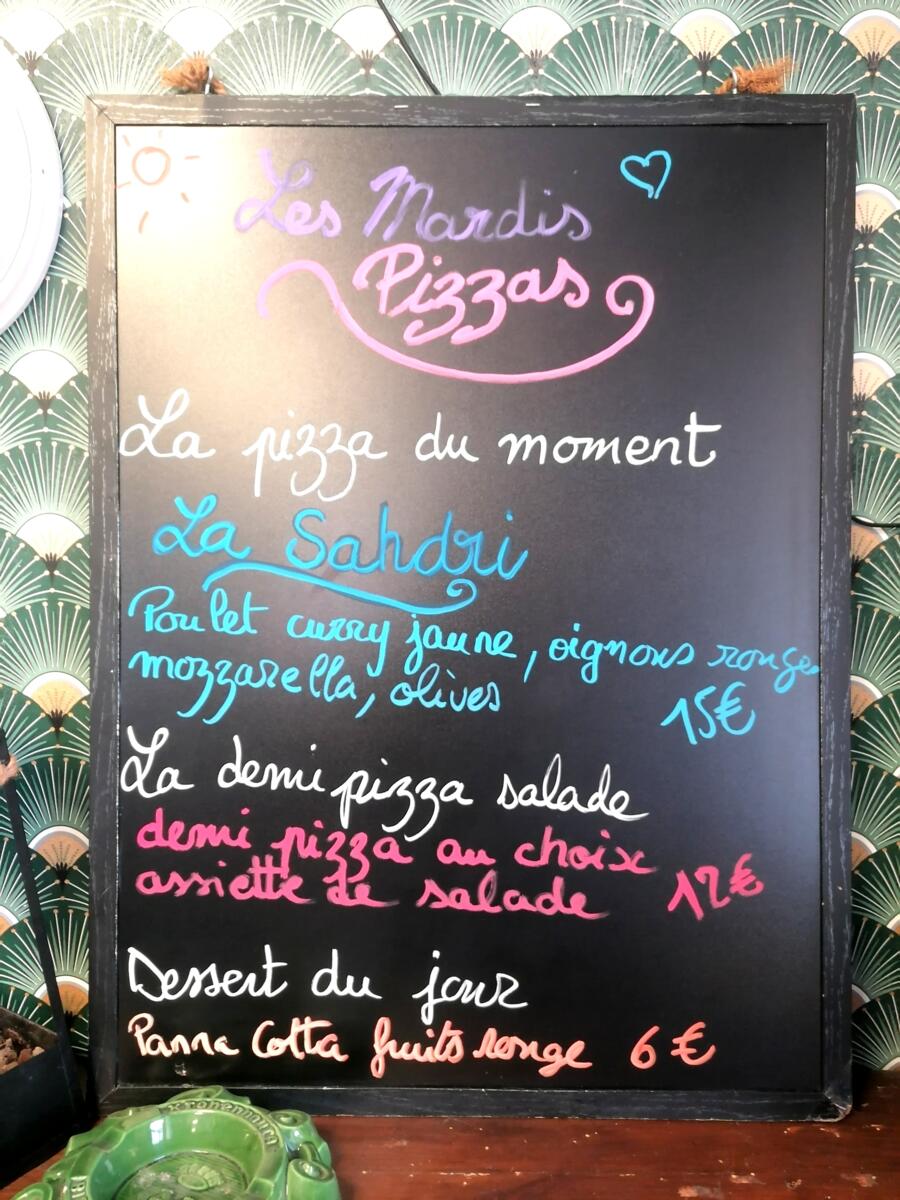 Les Mardis
Pizzas
La pizza du moment
La Sahdri
Poulet curry jaune, oignons rouges
mozzarella, olives
15€
La demi pizza salade
demi pizza au choix
assiette de salade 12€
Dessert du jour
Panna Cotta fruits rouge 6€